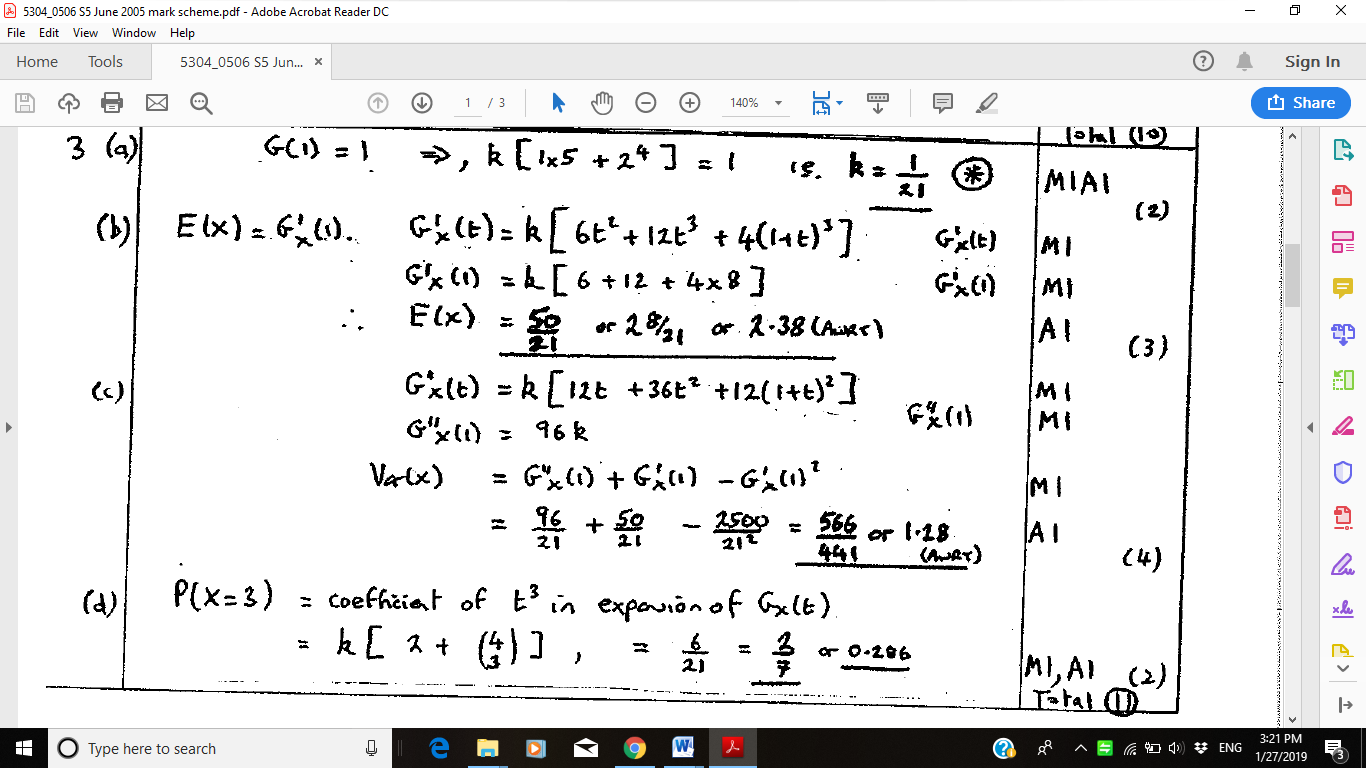 5304_0506 S5 June 2005 mark scheme.pdf - Adobe Acrobat Reader DC
File Edit View Window Help
Home Tools 5304_0506 S5 Jun... × Sign In
1 / 3 140% Share
Total (10)
3 (a) G(1) = 1 ⇒, k [1×5 + 2⁴] = 1 i.e. k = 1/21 (*) M1A1
(2)
(b) E(x) = G'x(1). G'x(t) = k [6t² + 12t³ + 4(1+t)³] G'x(t) M1
G'x(1) = k [6 + 12 + 4×8] G'x(1) M1
∴ E(x) = 50/21 or 2 8/21 or 2.38 (AWRT) A1
(3)
(c) G''x(t) = k [12t + 36t² + 12(1+t)²] M1
G''x(1) = 96k G''x(1) M1
Var(x) = G''x(1) + G'x(1) - G'x(1)² M1
= 96/21 + 50/21 - 2500/21² = 566/441 or 1.28 (AWRT) A1
(4)
(d) P(X=3) = coefficient of t³ in expansion of Gx(t)
= k [2 + (4 3)], = 6/21 = 2/7 or 0.286 M1, A1 (2)
Total (11)
Type here to search ENG 3:21 PM
1/27/2019 3